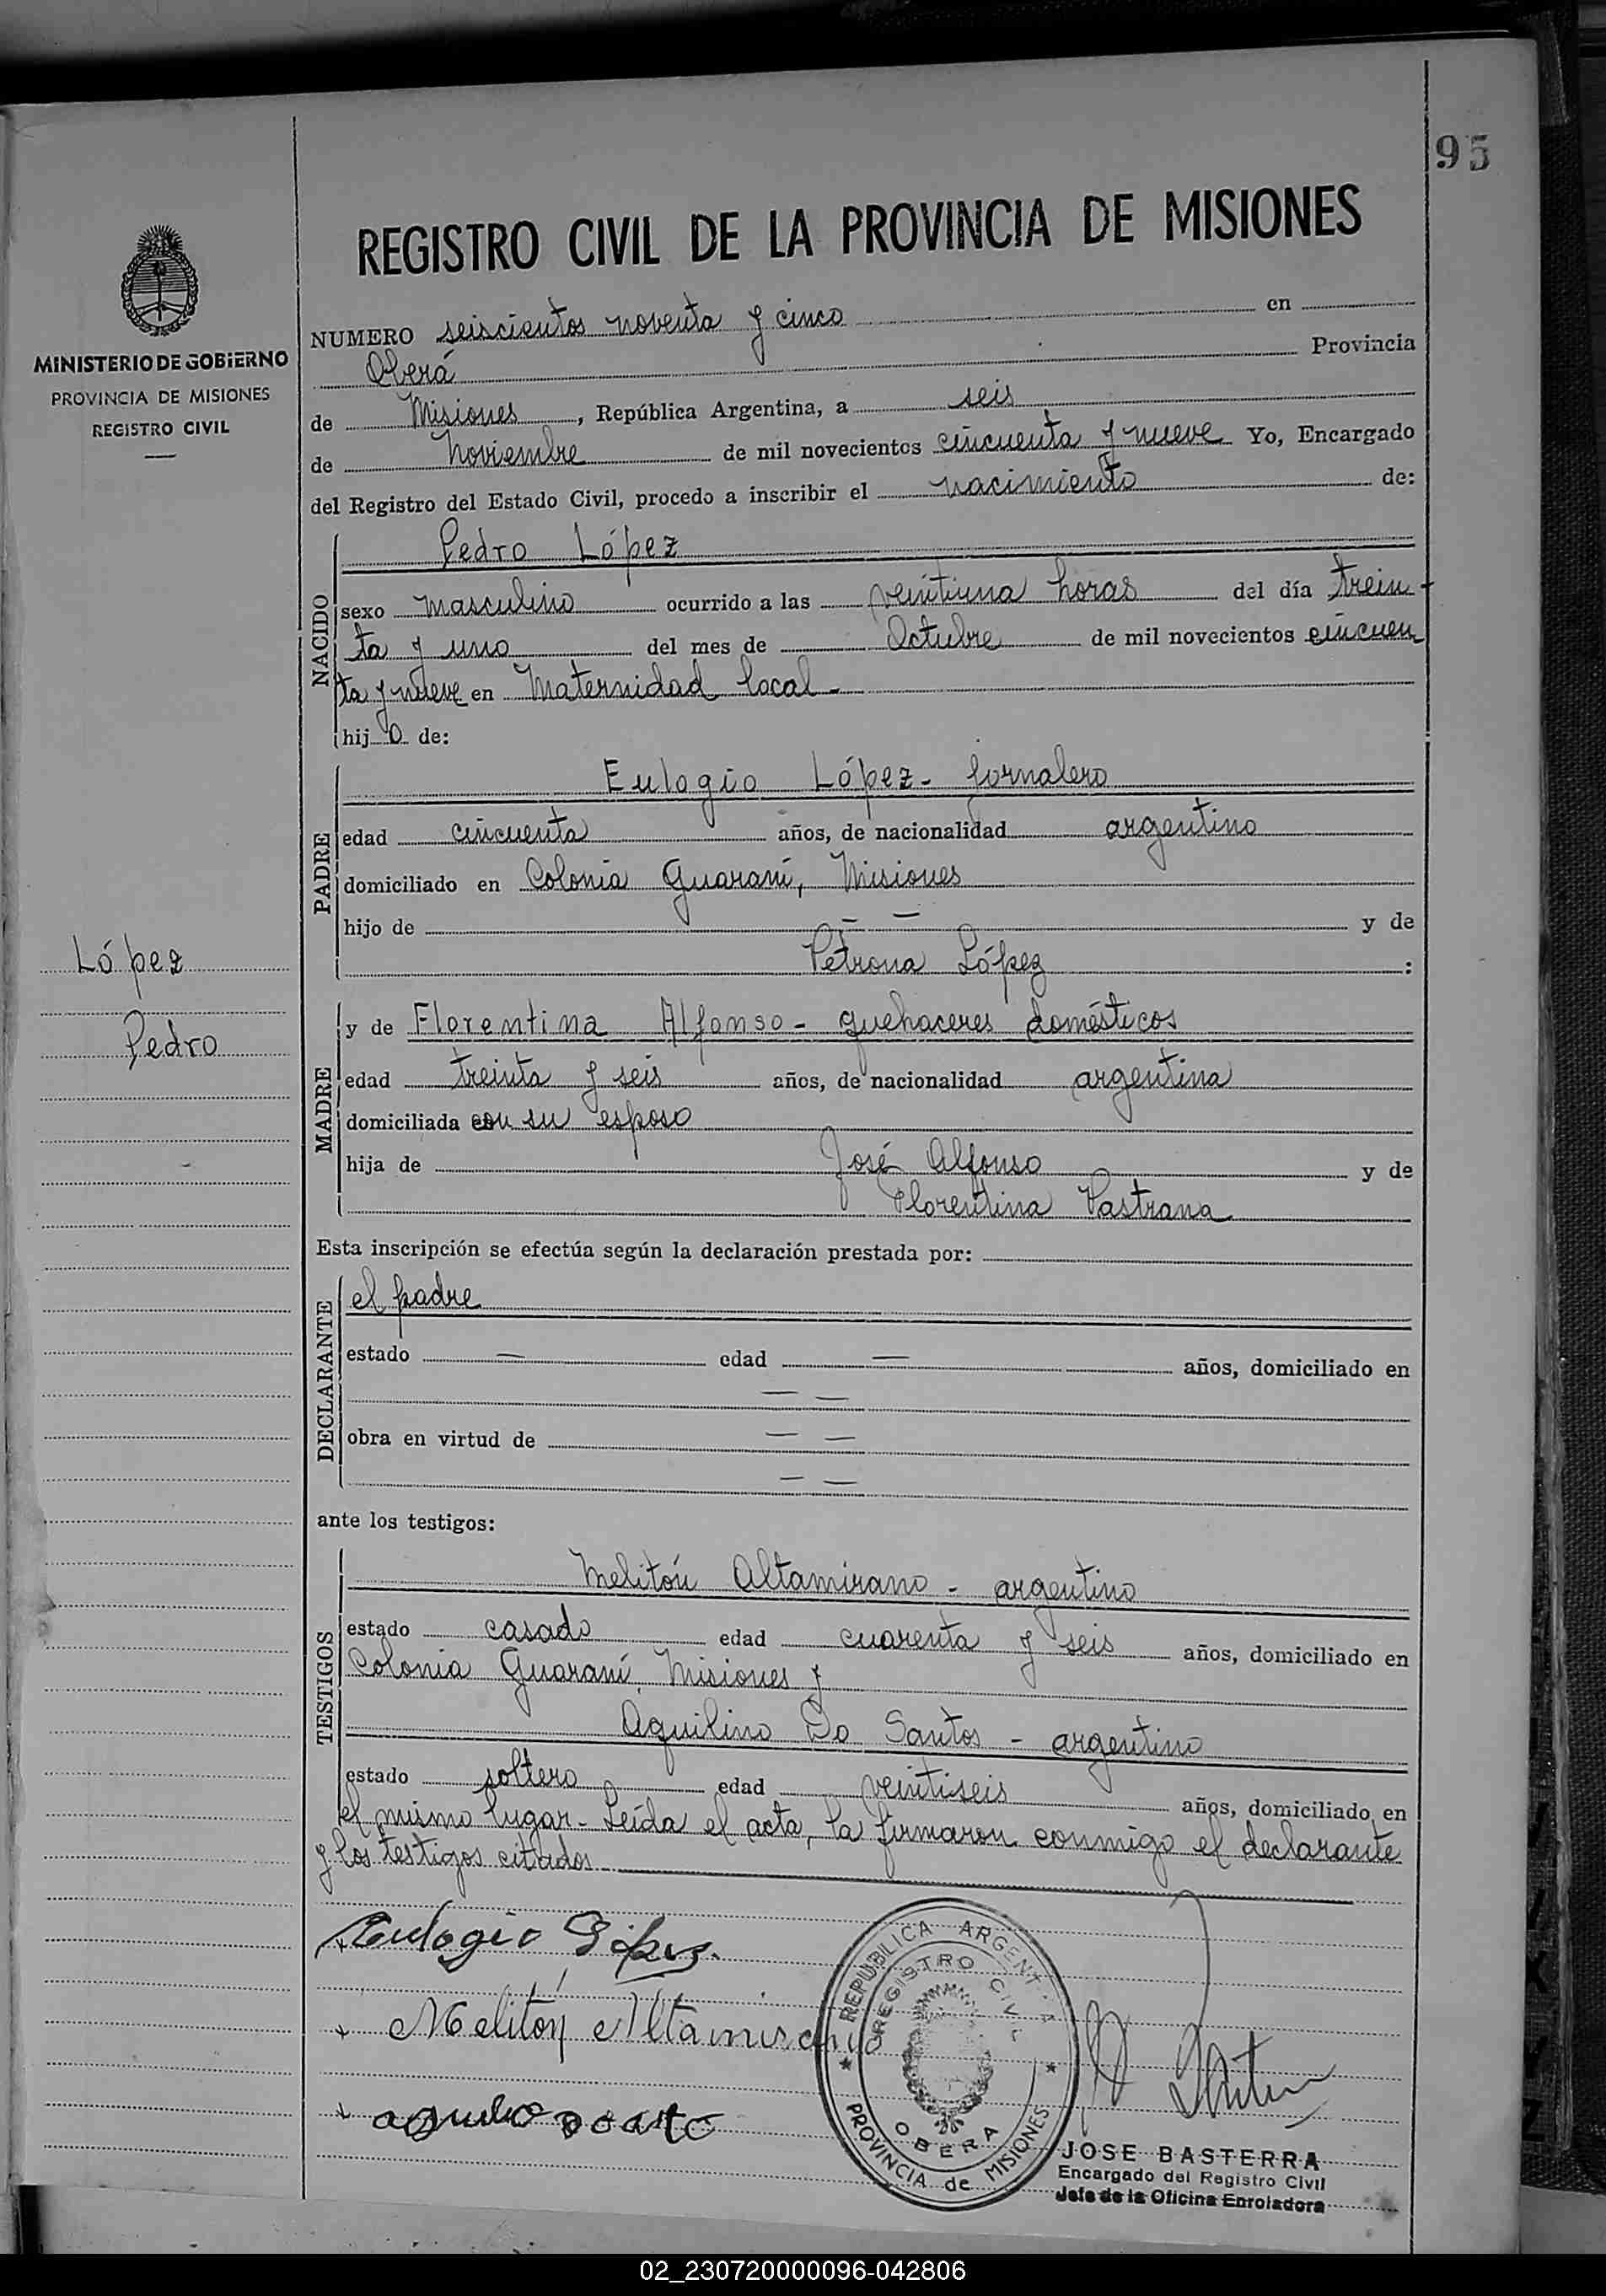 95
REGISTRO CIVIL DE LA PROVINCIA DE MISIONES
MINISTERIO DE GOBIERNO
PROVINCIA DE MISIONES
REGISTRO CIVIL
NUMERO seiscientos noventa y cinco en
Oberá Provincia
de Misiones, República Argentina, a seis
de Noviembre de mil novecientos cincuenta y nueve Yo, Encargado
del Registro del Estado Civil, procedo a inscribir el nacimiento de:
NACIDO
Pedro López
sexo masculino ocurrido a las veintiuna horas del día trein-
ta y uno del mes de Octubre de mil novecientos cincuen
ta y nueve en Maternidad local-
hijo de:
PADRE
Eulogio López - jornalero
edad cincuenta años, de nacionalidad argentino
domiciliado en Colonia Guaraní, Misiones
hijo de — — y de
Petrona López :
López
Pedro
MADRE
y de Florentina Alfonso - quehaceres domésticos
edad treinta y seis años, de nacionalidad argentina
domiciliada con su esposo
hija de José Alfonso y de
Florentina Pastrana
Esta inscripción se efectúa según la declaración prestada por:
DECLARANTE
el padre
estado — edad — años, domiciliado en
— —
obra en virtud de — —
— —
ante los testigos:
TESTIGOS
Melitón Altamirano - argentino
estado casado edad cuarenta y seis años, domiciliado en
Colonia Guaraní, Misiones y
Aquilino Do Santos - argentino
estado soltero edad veintiseis años, domiciliado en
el mismo lugar - Leída el acta, la firmaron conmigo el declarante
y los testigos citados
Eulogio López.
Melitón Altamirano
REPUBLICA ARGENTINA
REGISTRO CIVIL
OBERA
PROVINCIA de MISIONES
JOSE BASTERRA
Encargado del Registro Civil
Jefe de la Oficina Enroladora
02_230720000096-042806